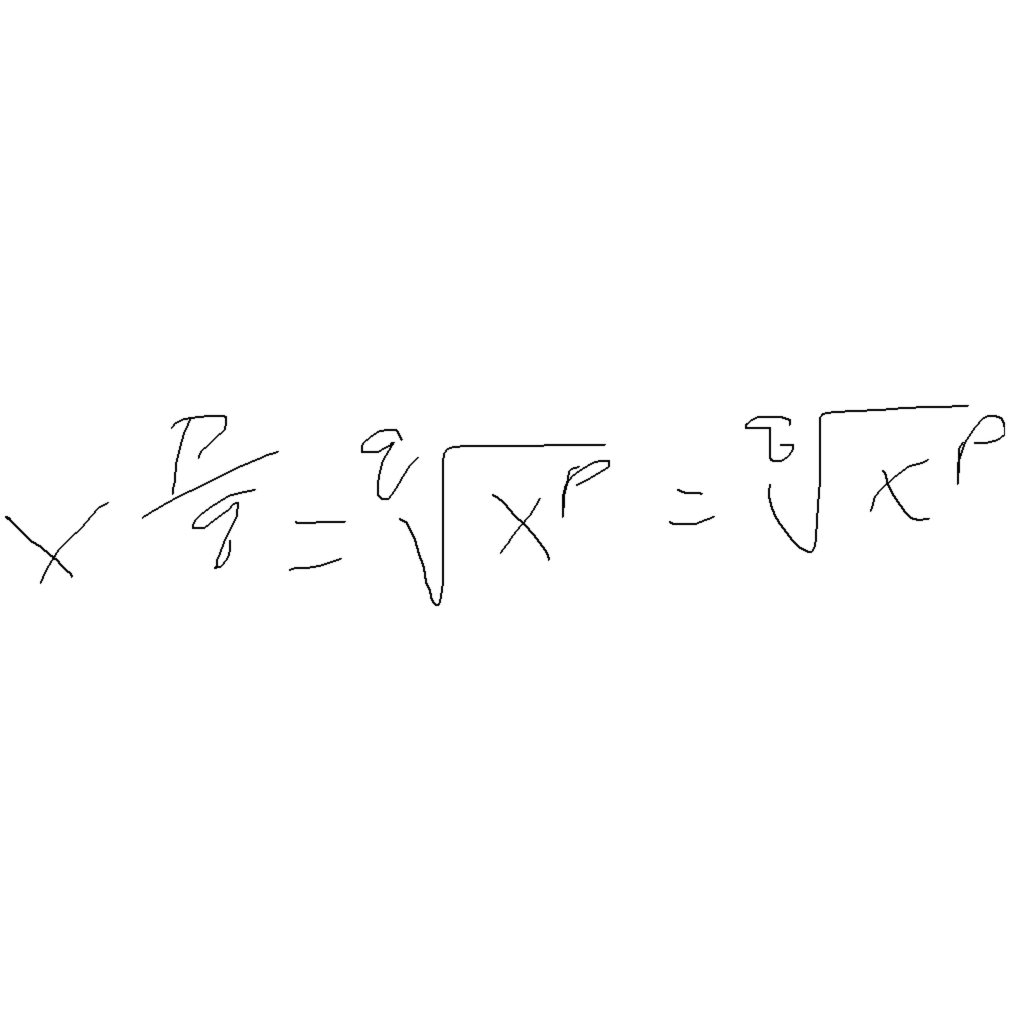 x^{p/q} = \sqrt[q]{x^p} = \sqrt[q]{x^p}